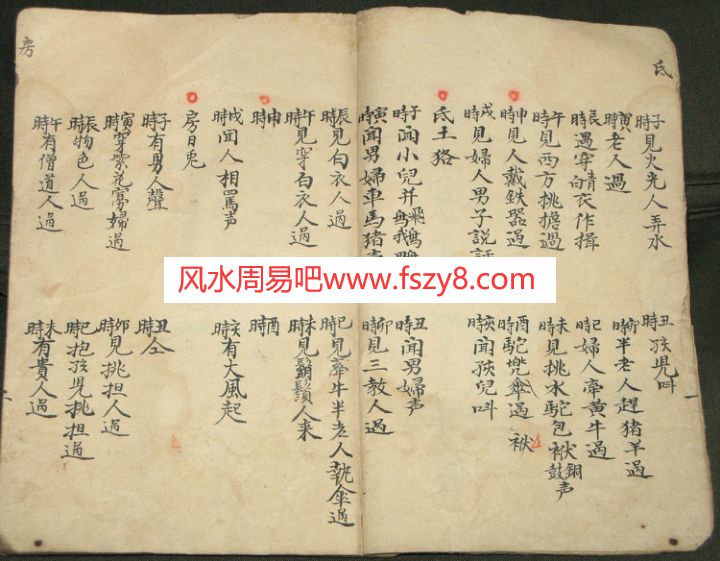 氐
子時見火光人弄水
丑時孩児叫
寅時老人過
卯時半老人趕猪羊過
辰時遇穿青衣作揖
巳時婦人牽黃牛過
午時見西方挑擔過
未時見挑水駝包袱銅鼓声
申時見人戴鉄器過
酉時駝兜傘過 袱
戌時見婦人男子説話
亥時聞孩兒叫
氐土狢
子時聞小兒并飛鵝鴨
丑時聞男婦声
寅時聞男婦車馬猪声
卯時見三教人過
辰時見白衣人過
巳時見牽牛半老人執傘過
午時見穿白衣人過
未時見鬍鬚人来
申時
酉時
戌時聞人相罵声
亥時有大風起
房日兎
子時有男人聲
丑時仝
寅時穿紫花寡婦過
卯時見挑担人過
辰時物色人過
巳時抱孩児挑担過
午時有僧道人過
未時有貴人過
房
风水周易吧www.fszy8.com